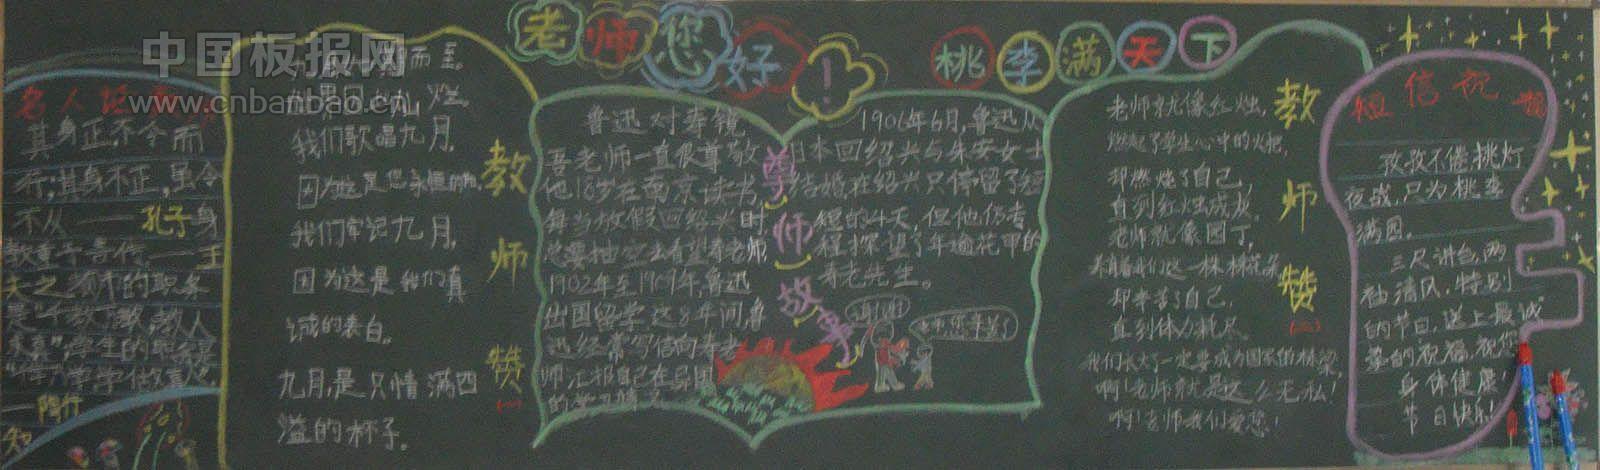 老师您好！
桃李满天下
中国板报网
www.cnbanbao.cn
名人
其身正不令而
行；其身不正，虽令
不从——孔子
教育
先生的职务
是千教万教，教人
求真
学生的
学做真人
——陶行
知
而至。
灿烂。
我们歌唱九月，
因为这是您永恒的
我们牢记九月，
因为这是我们真
诚的表白。
九月，是只情满四
溢的杯子。
教师赞
(一)
鲁迅对寿镜
吾老师一直很尊敬
他18岁在南京读书，
每当放假回绍兴时，
总要抽空去看望寿老师
1902年至1909年，鲁迅
出国留学这8年间，鲁
迅经常写信向寿老
师汇报自己在异国
的学习情
尊师故事
1906年6月，鲁迅从
日本回绍兴与朱安女士
结婚，在绍兴只停留了短
短的4天，但他仍专
程探望了年逾花甲的
寿老先生。
谢谢！
老师，您辛苦了
老师就像红烛，
燃起了学生心中的火把，
却燃烧了自己，
直到红烛成灰。
老师就像园丁，
养育着我们这一株株花朵
却辛苦了自己，
直到体力耗尽。
我们长大了一定要成为国家的栋梁，
啊！老师就是这么无私！
啊！老师我们爱您！
教师赞
(二)
短信祝福
孜孜不倦挑灯
夜战，只为桃李
满园。
三尺讲台，两
袖清风，特别
的节日，送上最诚
挚的祝福，祝您
身体健康
节日快乐！